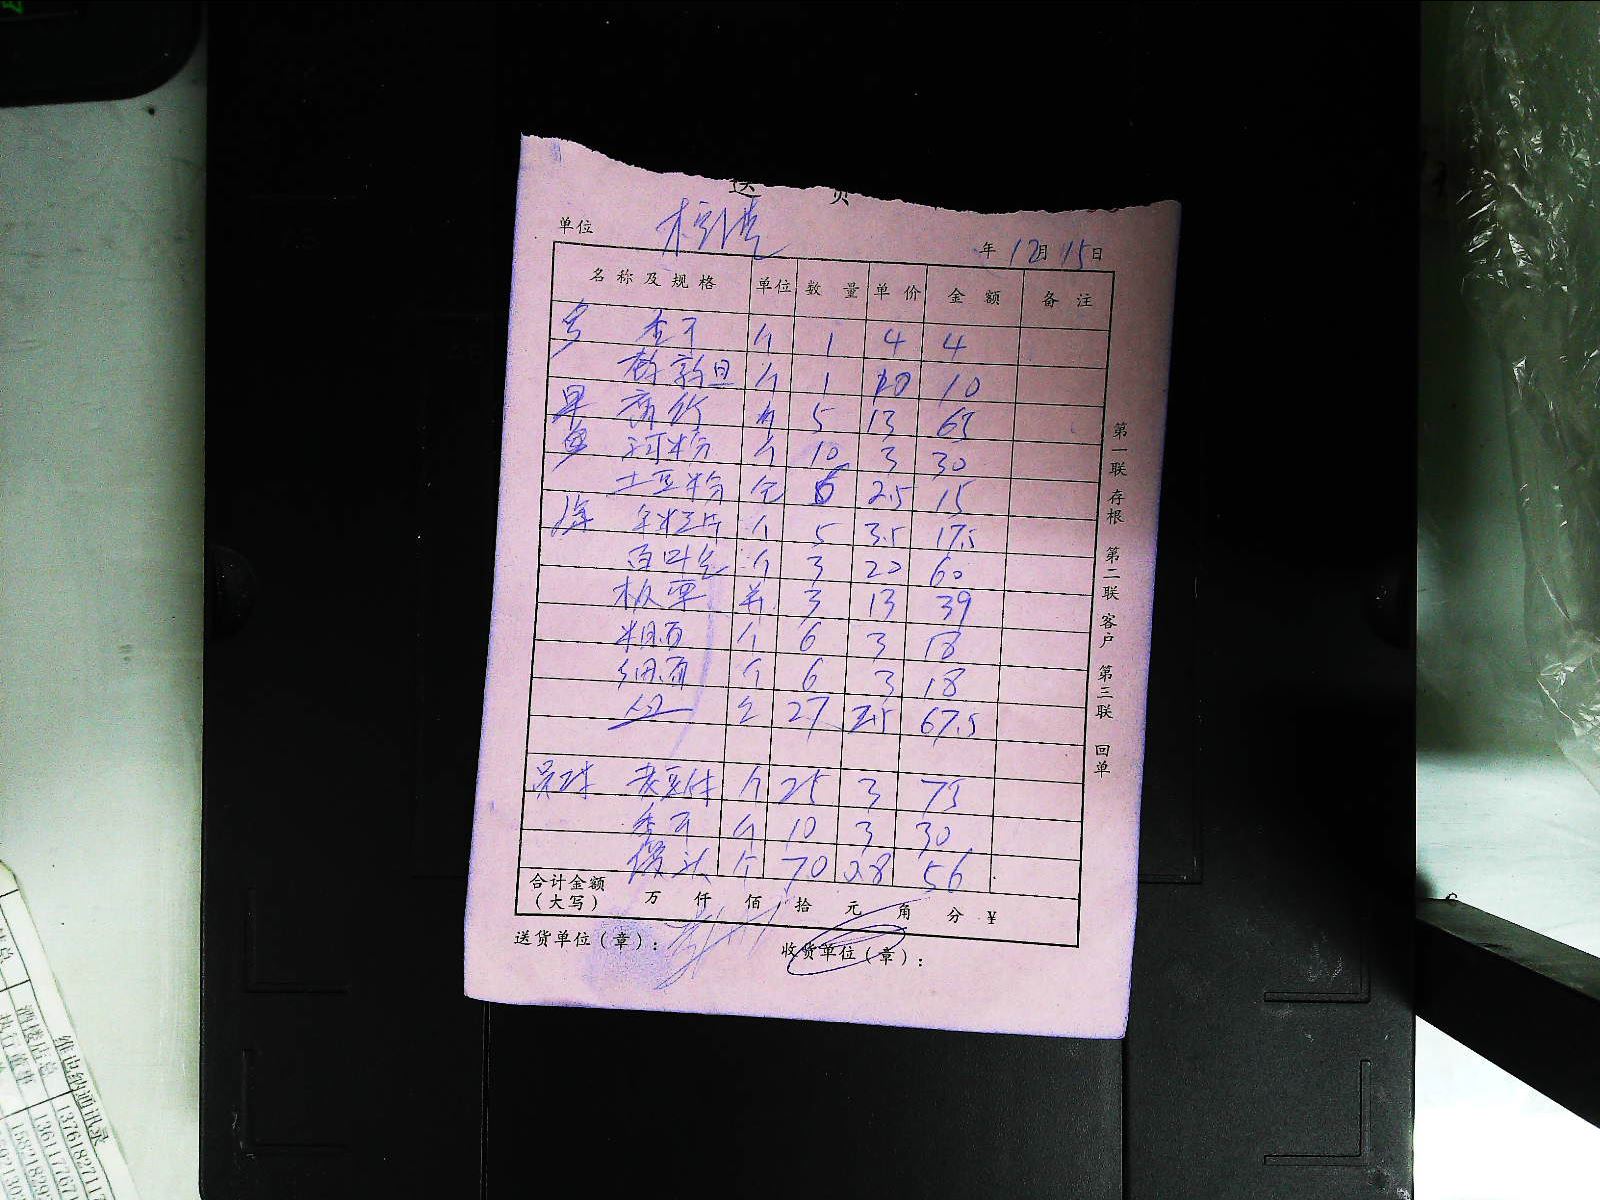 送 货
单位 年 12月 15日
名称及规格 单位 数量 单价 金额 备注
香干 个 1 4 4
个 1 10 10
5 13 65
河粉 个 10 3 30
土豆粉 个 6 2.5 15
年糕片 个 5 3.5 17.5
百叶包 个 3 20 60
板栗 斤 3 13 39
粗面 个 6 3 18
细面 个 6 3 18
27 2.5 67.5
老豆付 个 25 3 75
香干 个 10 3 30
馒头 个 70 0.8 56
合计金额
(大写) 万 仟 佰 拾 元 角 分 ¥
送货单位(章): 收货单位(章):
第一联 存根 第二联 客户 第三联 回单
维也纳通讯录
酒楼店总